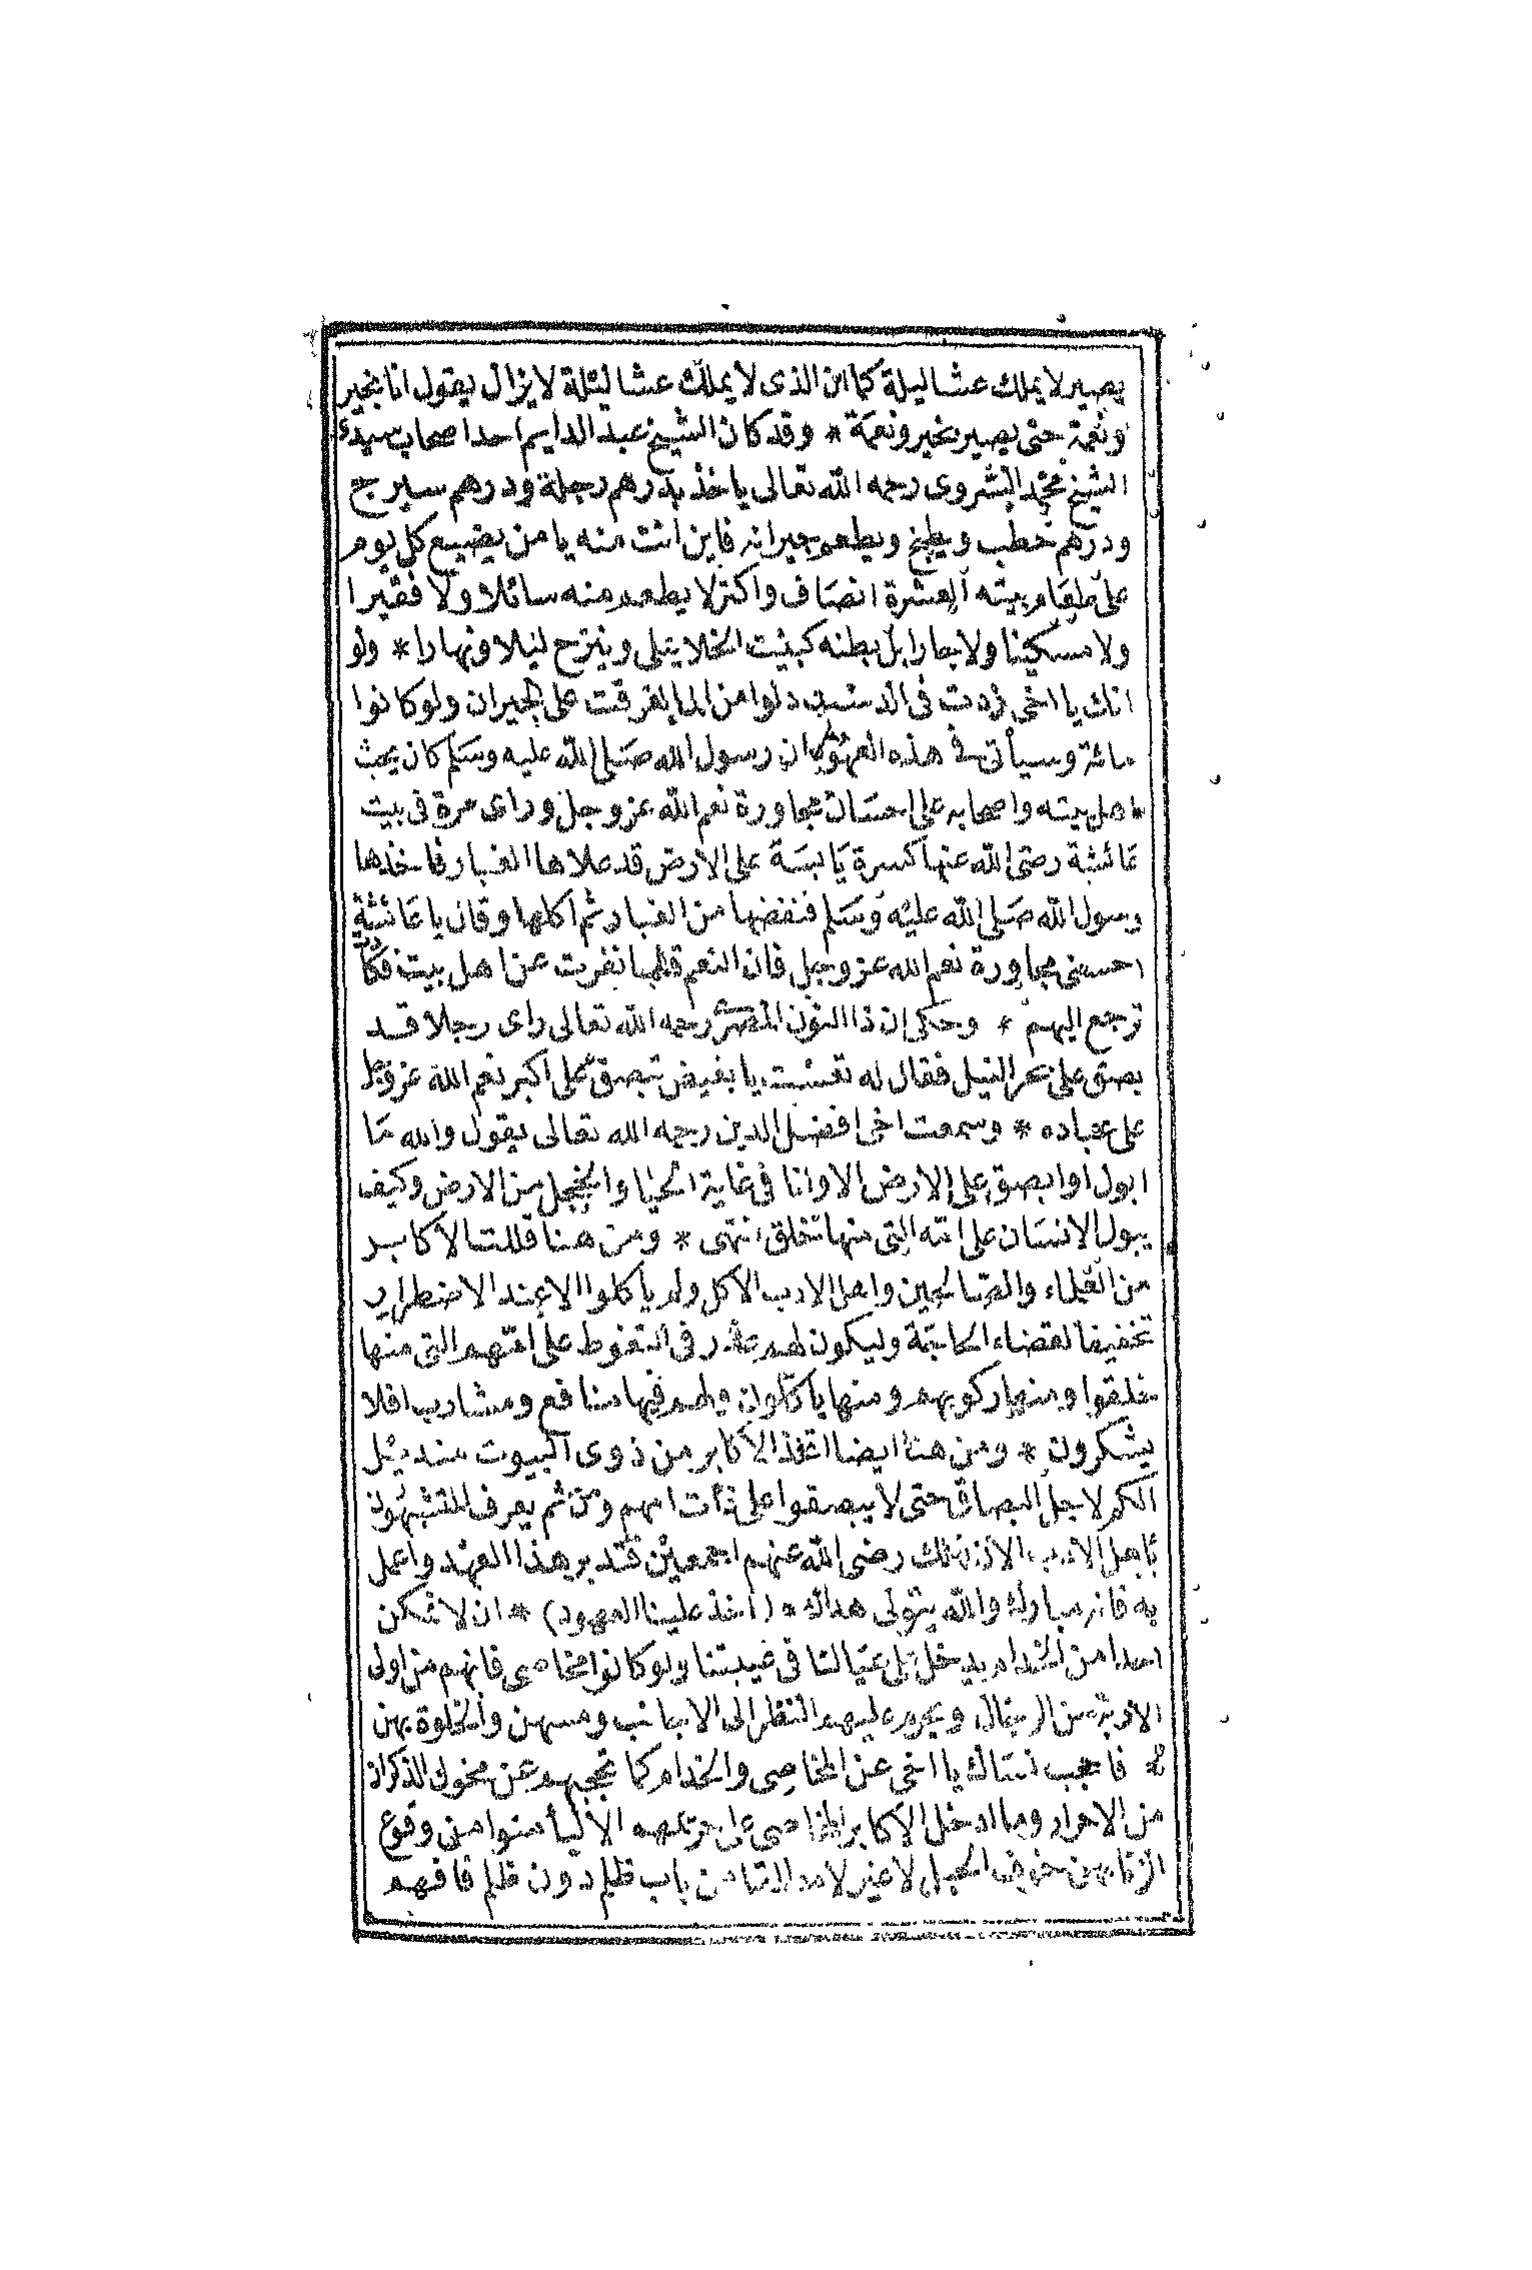 يصير لا يملك عشا ليلة كما ان الذى لا يملك عشا ليلة لا يزال يقول انا بخير
ونعمة حتى يصير بخير ونعمة * وقد كان الشيخ عبد الدايم احد اصحاب سيدى
الشيخ محمد الشروى رحمه الله تعالى ياخذ بدرهم رجلة ودرهم سيرج
ودرهم حطب ويطبخ ويطعم جيرانه فاين انت منه يا من يضيع كل يوم
على طعام بيته العشرة انصاف واكثر لا يطعم منه سائلا ولا فقيرا
ولا مسكينا ولا جارا بل بطنه كبيت الخلا يتلى وينزح ليلا ونهارا * ولو
انك يا اخى زدت فى الدست دلوا من الما لفرقت على الجيران ولو كانوا
مائة وسيأتى فى هذه العهود ان رسول الله صلى الله عليه وسلم كان يحث
اهل بيته واصحابه على احسان مجاورة نعم الله عز وجل وراى مرة فى بيت
عائشة رضى الله عنها كسرة يابسة على الارض قد علاها الغبار فاخذها
رسول الله صلى الله عليه وسلم فنفضها من الغبار ثم اكلها وقال يا عائشة
احسنى مجاورة نعم الله عز وجل فان النعم قلما نفرت عن اهل بيت فكادت
ترجع اليهم * وحكى ان ذا النون المصرى رحمه الله تعالى راى رجلا قد
بصق على بحر النيل فقال له تعست يا بغيض تبصق على اكبر نعم الله عز وجل
على عباده * وسمعت اخى افضل الدين رحمه الله تعالى يقول والله ما
ابول او ابصق على الارض الا وانا فى غاية الحيا والخجل من الارض وكيف
يبول الانسان على امه التى منها تخلق انتهى * ومن هنا قللت الاكابر
من العلماء والصالحين واهل الادب الاكل ولم ياكلوا الا عند الاضطرار
تخفيفا لقضاء الحاجة وليكون لهم عذر فى التغوط على امهم التى منها
خلقوا ومنها ركوبهم ومنها ياكلون ولهم فيها منافع ومشارب افلا
يشكرون * ومن هنا ايضا اتخذ الاكابر من ذوى البيوت منديل
الكم لاجل البصاق حتى لا يبصقوا على ذات امهم ومن ثم يعرف المتشبهون
باهل الادب الا ذلك رضى الله عنهم اجمعين فتدبر هذا العهد واعمل
به فانه مبارك والله يتولى هداك * (اخذ علينا العهود) * ان لا نمكن
احدا من الخدام يدخل على عيالنا فى غيبتنا ولو كانوا مخاصى فانهم من اولى
الاربة من الرجال ويحرم عليهم النظر الى الاجانب ومسهن والخلوة بهن
* فاحجب نساك يا اخى عن المخاصى والخدام كما تحجبهم عن فحول الذكران
من الاحرار وما ادخل الاكابر المخاصى على حريمهم الا ليأمنوا من وقوع
الزنا بهن خوف الحبل لا غير من باب ظلم دون ظلم فافهم